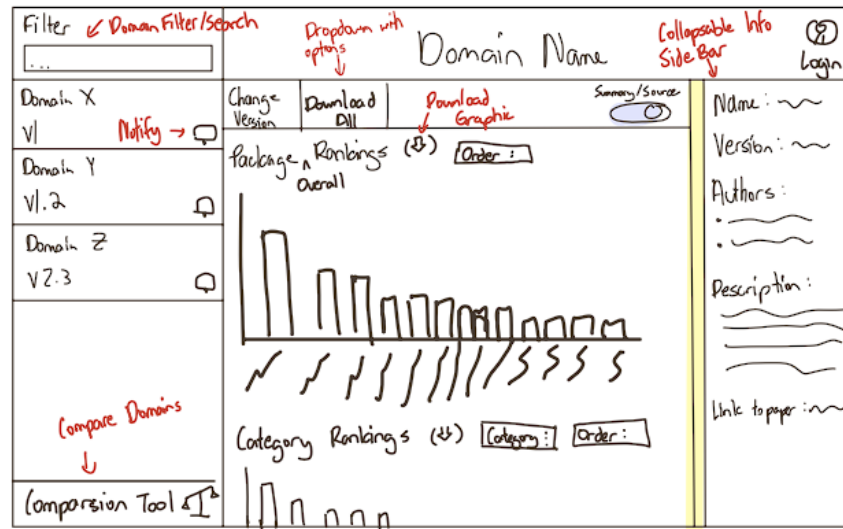 Filter
Domain Filter/Search
...
Dropdown with
options
Domain Name
Collapsable Info
Side Bar
Login
Domain X
V1
Notify
Domain Y
V1.2
Domain Z
V2.3
Compare Domains
Comparsion Tool
Change
Version
Download
All
Download
Graphic
Summary/Source
Package ^ Rankings
Overall
Order :
Category Rankings
Category :
Order :
Name :
Version :
Authors :
Description :
Link to paper :